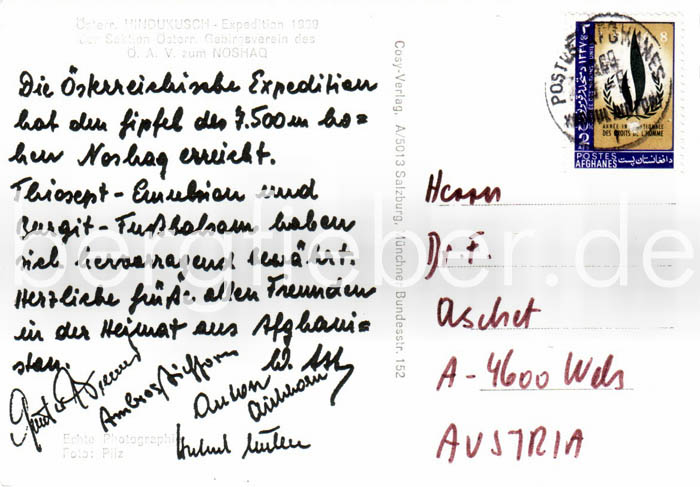 Österr. HINDUKUSCH - Expedition 1969
der Sektion Österr. Gebirgsverein des
Ö. A. V. zum NOSHAQ
Die Österreichische Expedition
hat den Gipfel des 7.500 m ho=
hen Noshaq erreicht.
Thiosept - Emulsion und
Burgit - Fußbalsam haben
sich hervorragend bewährt.
Herzliche Grüße allen Freunden
in der Heimat aus Afghani=
stan.
Anton
Echte Photographie
Foto: Pilz
Cosy-Verlag, A/5013 Salzburg, Münchne Bundesstr. 152
8
POSTES AFGHANES
ANNEE INTERNATIONALE
DES DROITS DE L'HOMME
2
POSTES
AFGHANES
افغانستان پست
Herrn
Dr. F.
Aschet
A - 4600 Wels
AUSTRIA
bergfieber.de